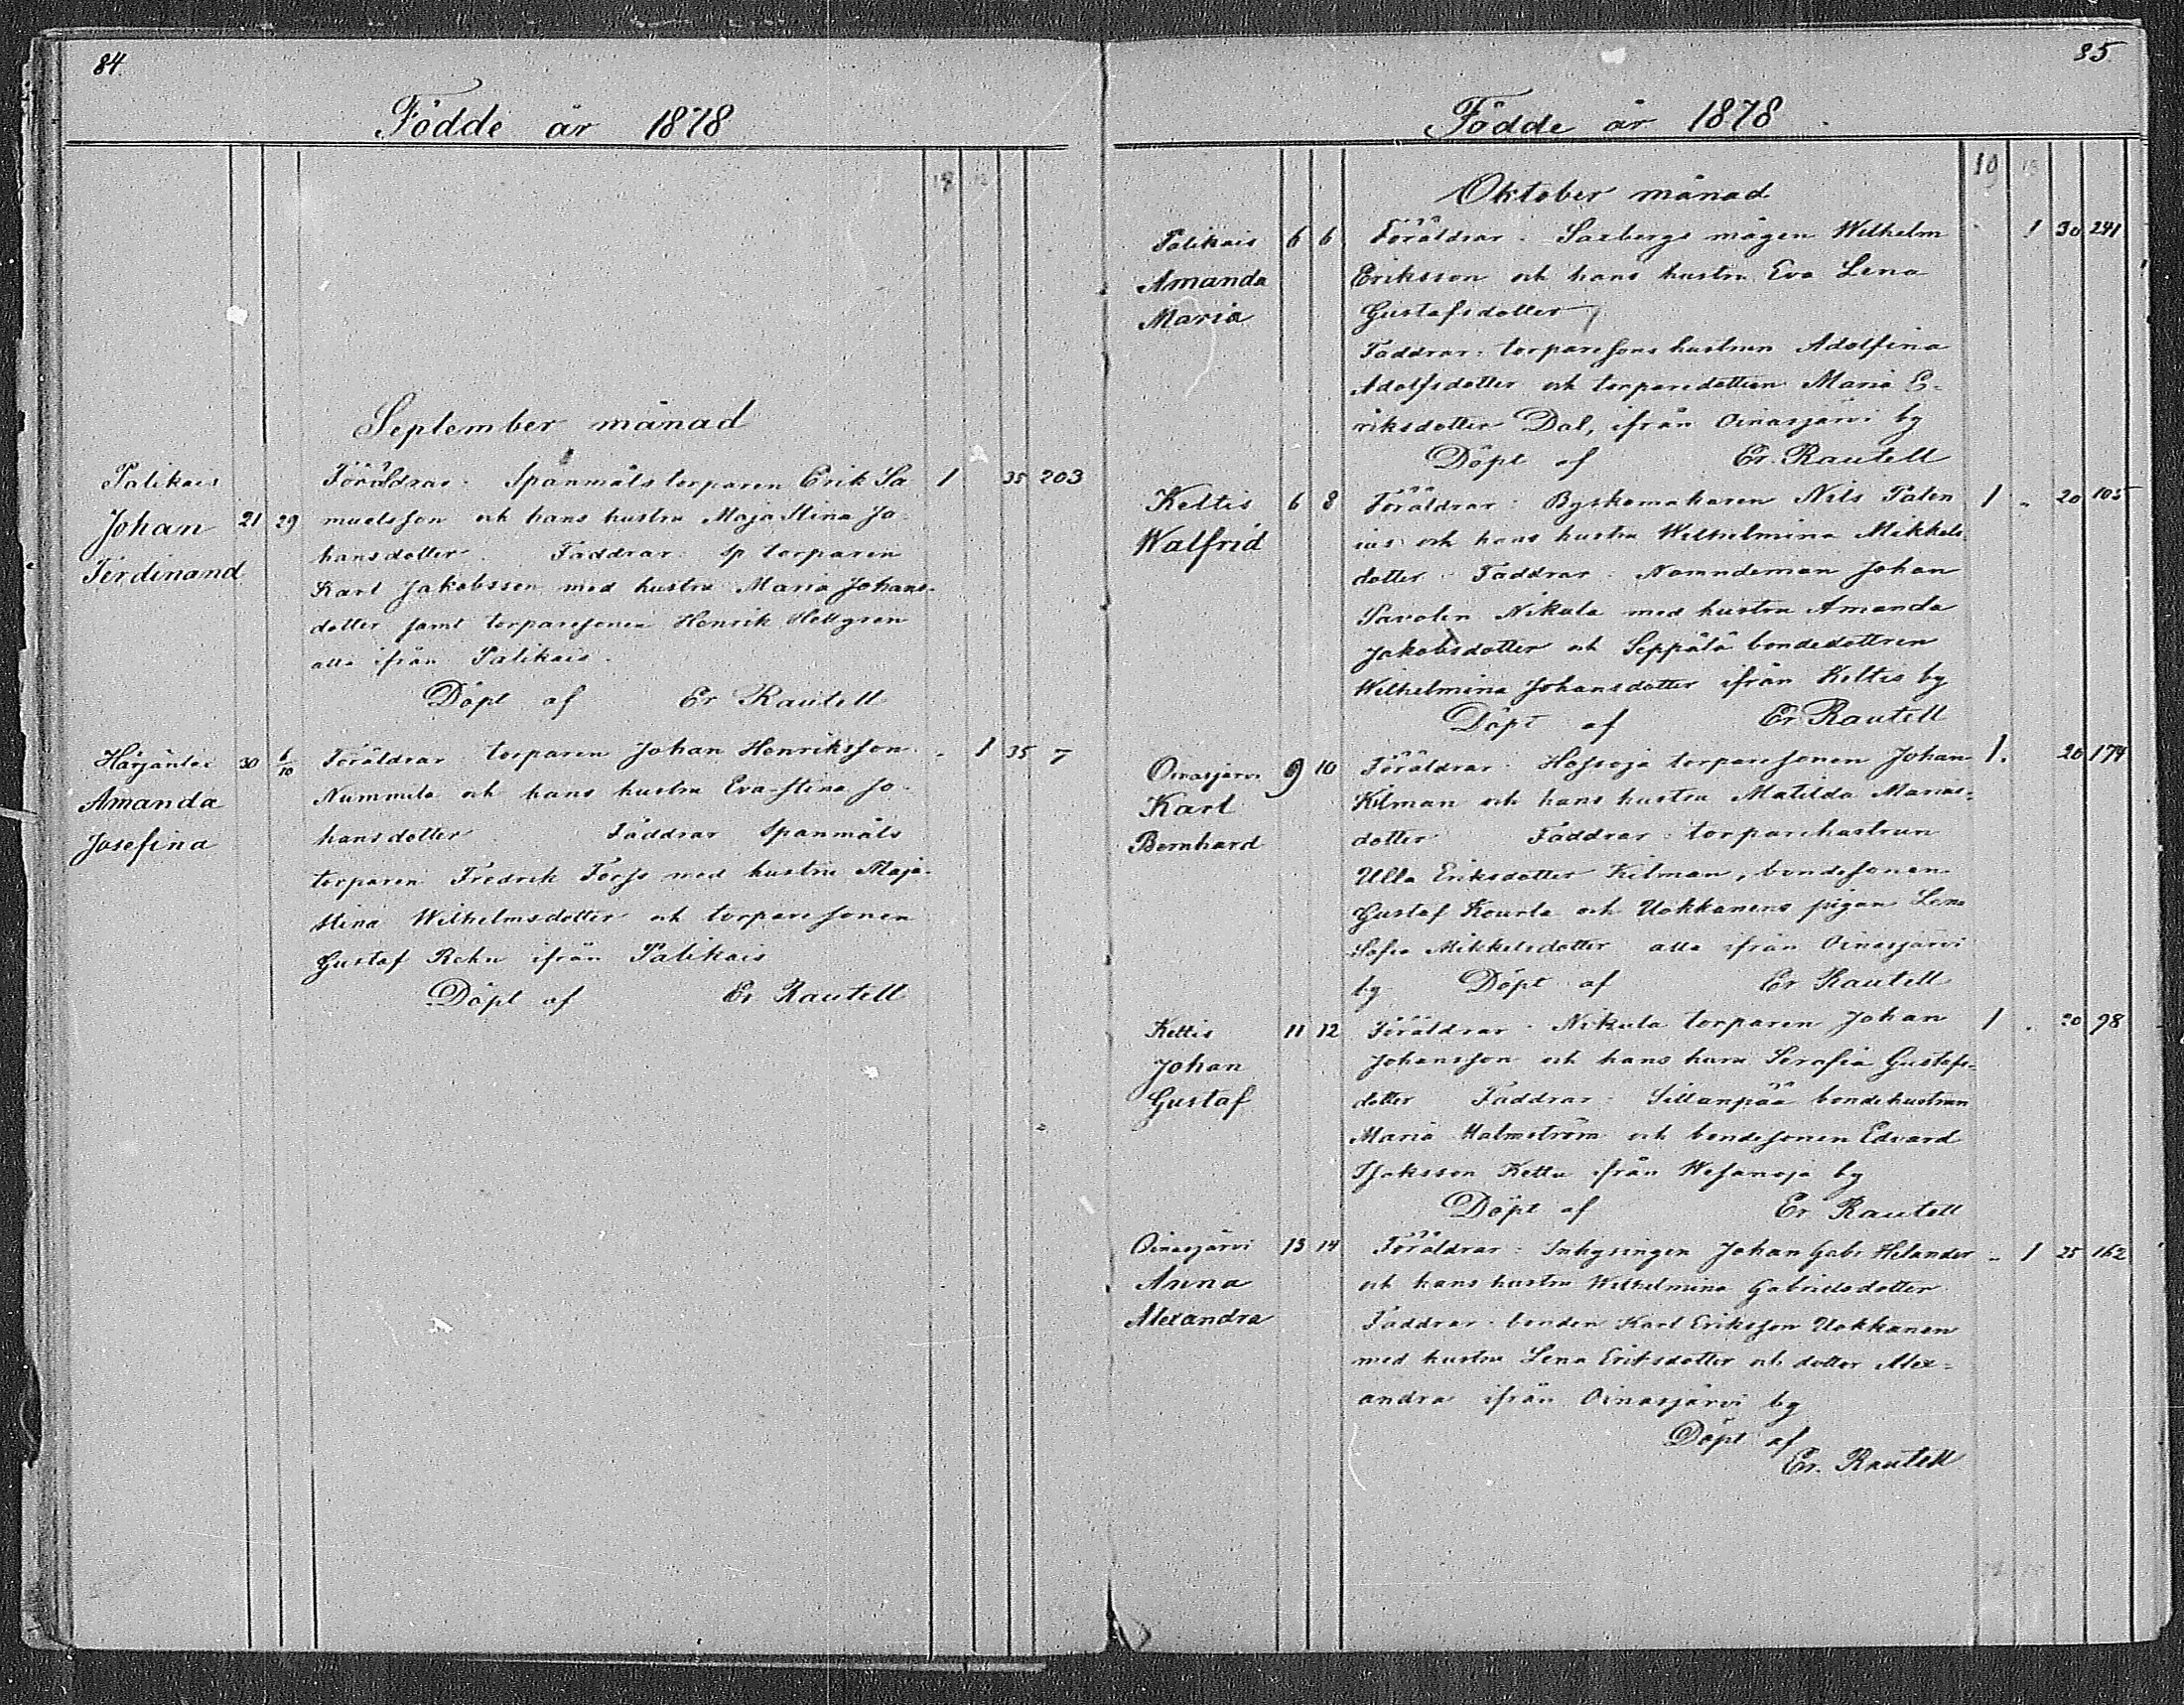 84
Födde år 1878
September månad
Palikais
Johan
Ferdinand
21 29
Föräldrar: Spanmåls torparen Erik Sa
muelsson och hans hustru Maja Stina Jo-
hansdotter. Faddrar: sp torparen
Karl Jakobsson med hustru Maria Johans-
dotter samt torparesonen Henrik Hellgren
alla ifrån Palikais.
Döpt af Er Rautell
1 35 203
Härjänlai
Amanda
Josefina
30 6/10
Föräldrar torparen Johan Henriksson
Nummila och hans hustru Eva Stina Jo-
hansdotter Faddrar Spanmåls
torparen Fredrik Forss med hustru Maja
Stina Wilhelmsdotter och torparesonen
Gustaf Rehn ifrån Palikais
Döpt af Er Rautell
- 1 35 7
85
Födde år 1878
10
Oktober månad
Palikais
Amanda
Maria
6 6
Föräldrar: Saxbergs mågen Wilhelm
Eriksson och hans hustru Eva Lena
Gustafsdotter
Faddrar: torparesons hustrun Adolfina
Adolfsdotter och torparedottren Maria E-
riksdotter Dal, ifrån Oinasjärvi by
Döpt af Er. Rautell
1 30 241
Keltis
Walfrid
6 8
Föräldrar: Byskomakaren Nils Palen
ius och hans hustru Wilhelmina Mikkels-
dotter. Faddrar: Nämndeman Johan
Savolin Nikula med hustru Amanda
Jakobsdotter och Seppälä bondedottren
Wilhelmina Johansdotter ifrån Keltis by
Döpt af Er Rautell
1 - 20 105
Oinasjärvi
Karl
Bernhard
9 10
Föräldrar: torparesonen Johan
Kilman och hans hustru Matilda Marias-
dotter Faddrar: torparehustrun
Ulla Eriksdotter Kilman, bondesonen
Gustaf Kourla och Uokkanens pigan Lena
Sofia Mikkelsdotter alla ifrån Oinasjärvi
by Döpt af Er Rautell
1. 20 174
Keltis
Johan
Gustaf
11 12
Föräldrar: Nikula torparen Johan
Johansson och hans hustru Serafia Gustafs-
dotter Faddrar: Sillanpää bondehustrun
Maria Malmström och bondesonen Edvard
Isaksson Kettu ifrån Wesanoja by
Döpt af Er Rautell
1 . 20 98
Oinasjärvi
Anna
Alexandra
13 14
Föräldrar: Inhysingen Johan Gabr Helander
och hans hustru Wilhelmina Gabrielsdotter
Faddrar: bonden Karl Eriksson Uokkanen
med hustru Lena Eriksdotter och dotter Alex-
andra ifrån Oinasjärvi by
Döpt af
Er. Rautell
- 1 25 162